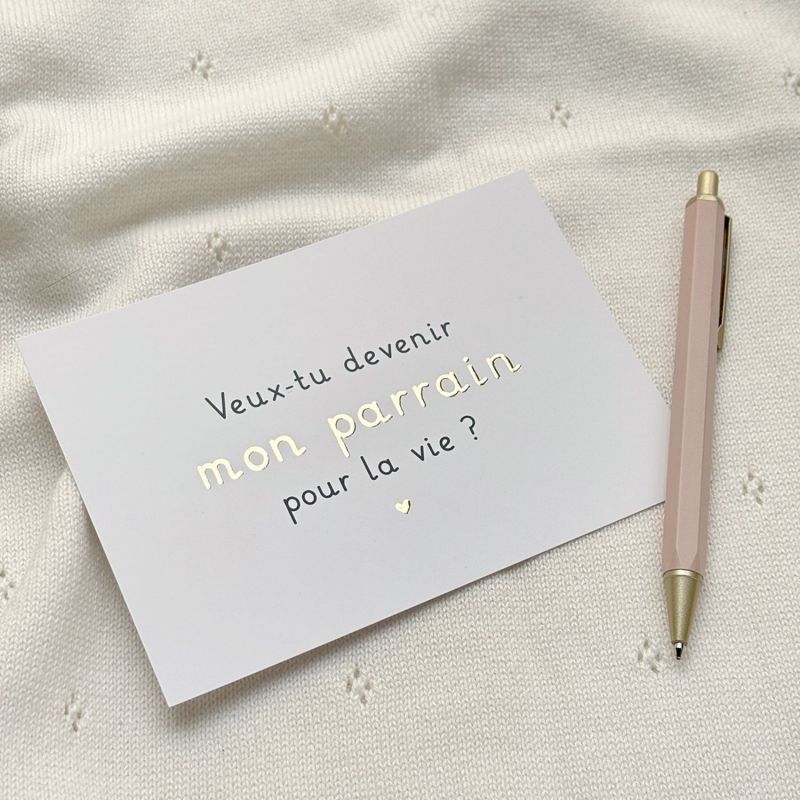 Veux-tu devenir
mon parrain
pour la vie ?